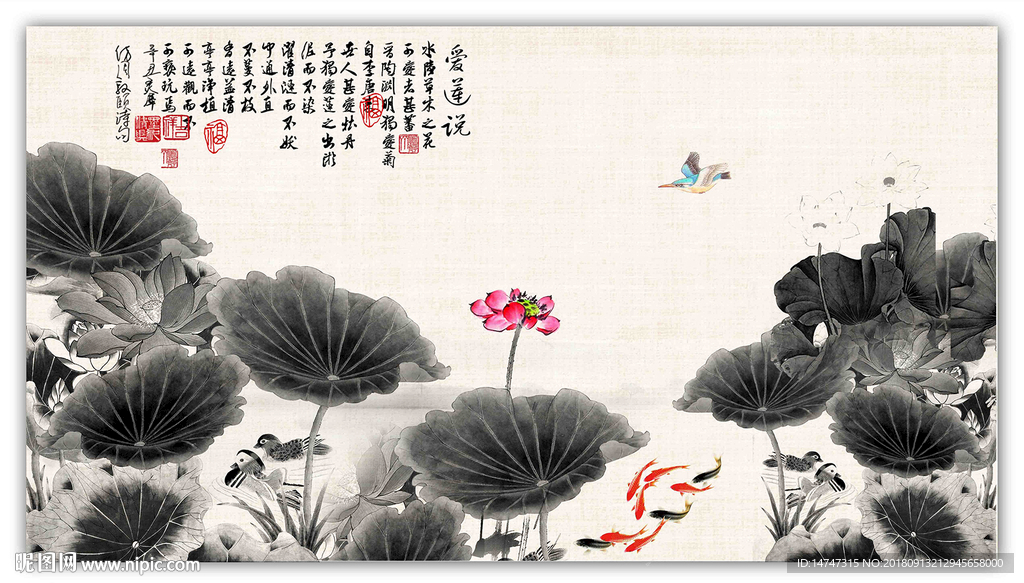 爱莲说
水陸草木之花
可愛者甚蕃
晋陶渊明獨愛菊
自李唐
世人甚愛牡丹
予獨愛莲之出淤
泥而不染
濯清涟而不妖
中通外直
不蔓不枝
香遠益清
亭亭净植
可遠觀而不
可亵玩焉
辛丑
福
福
昵图网 www.nipic.com
ID:14747315 NO:20180913212945658000